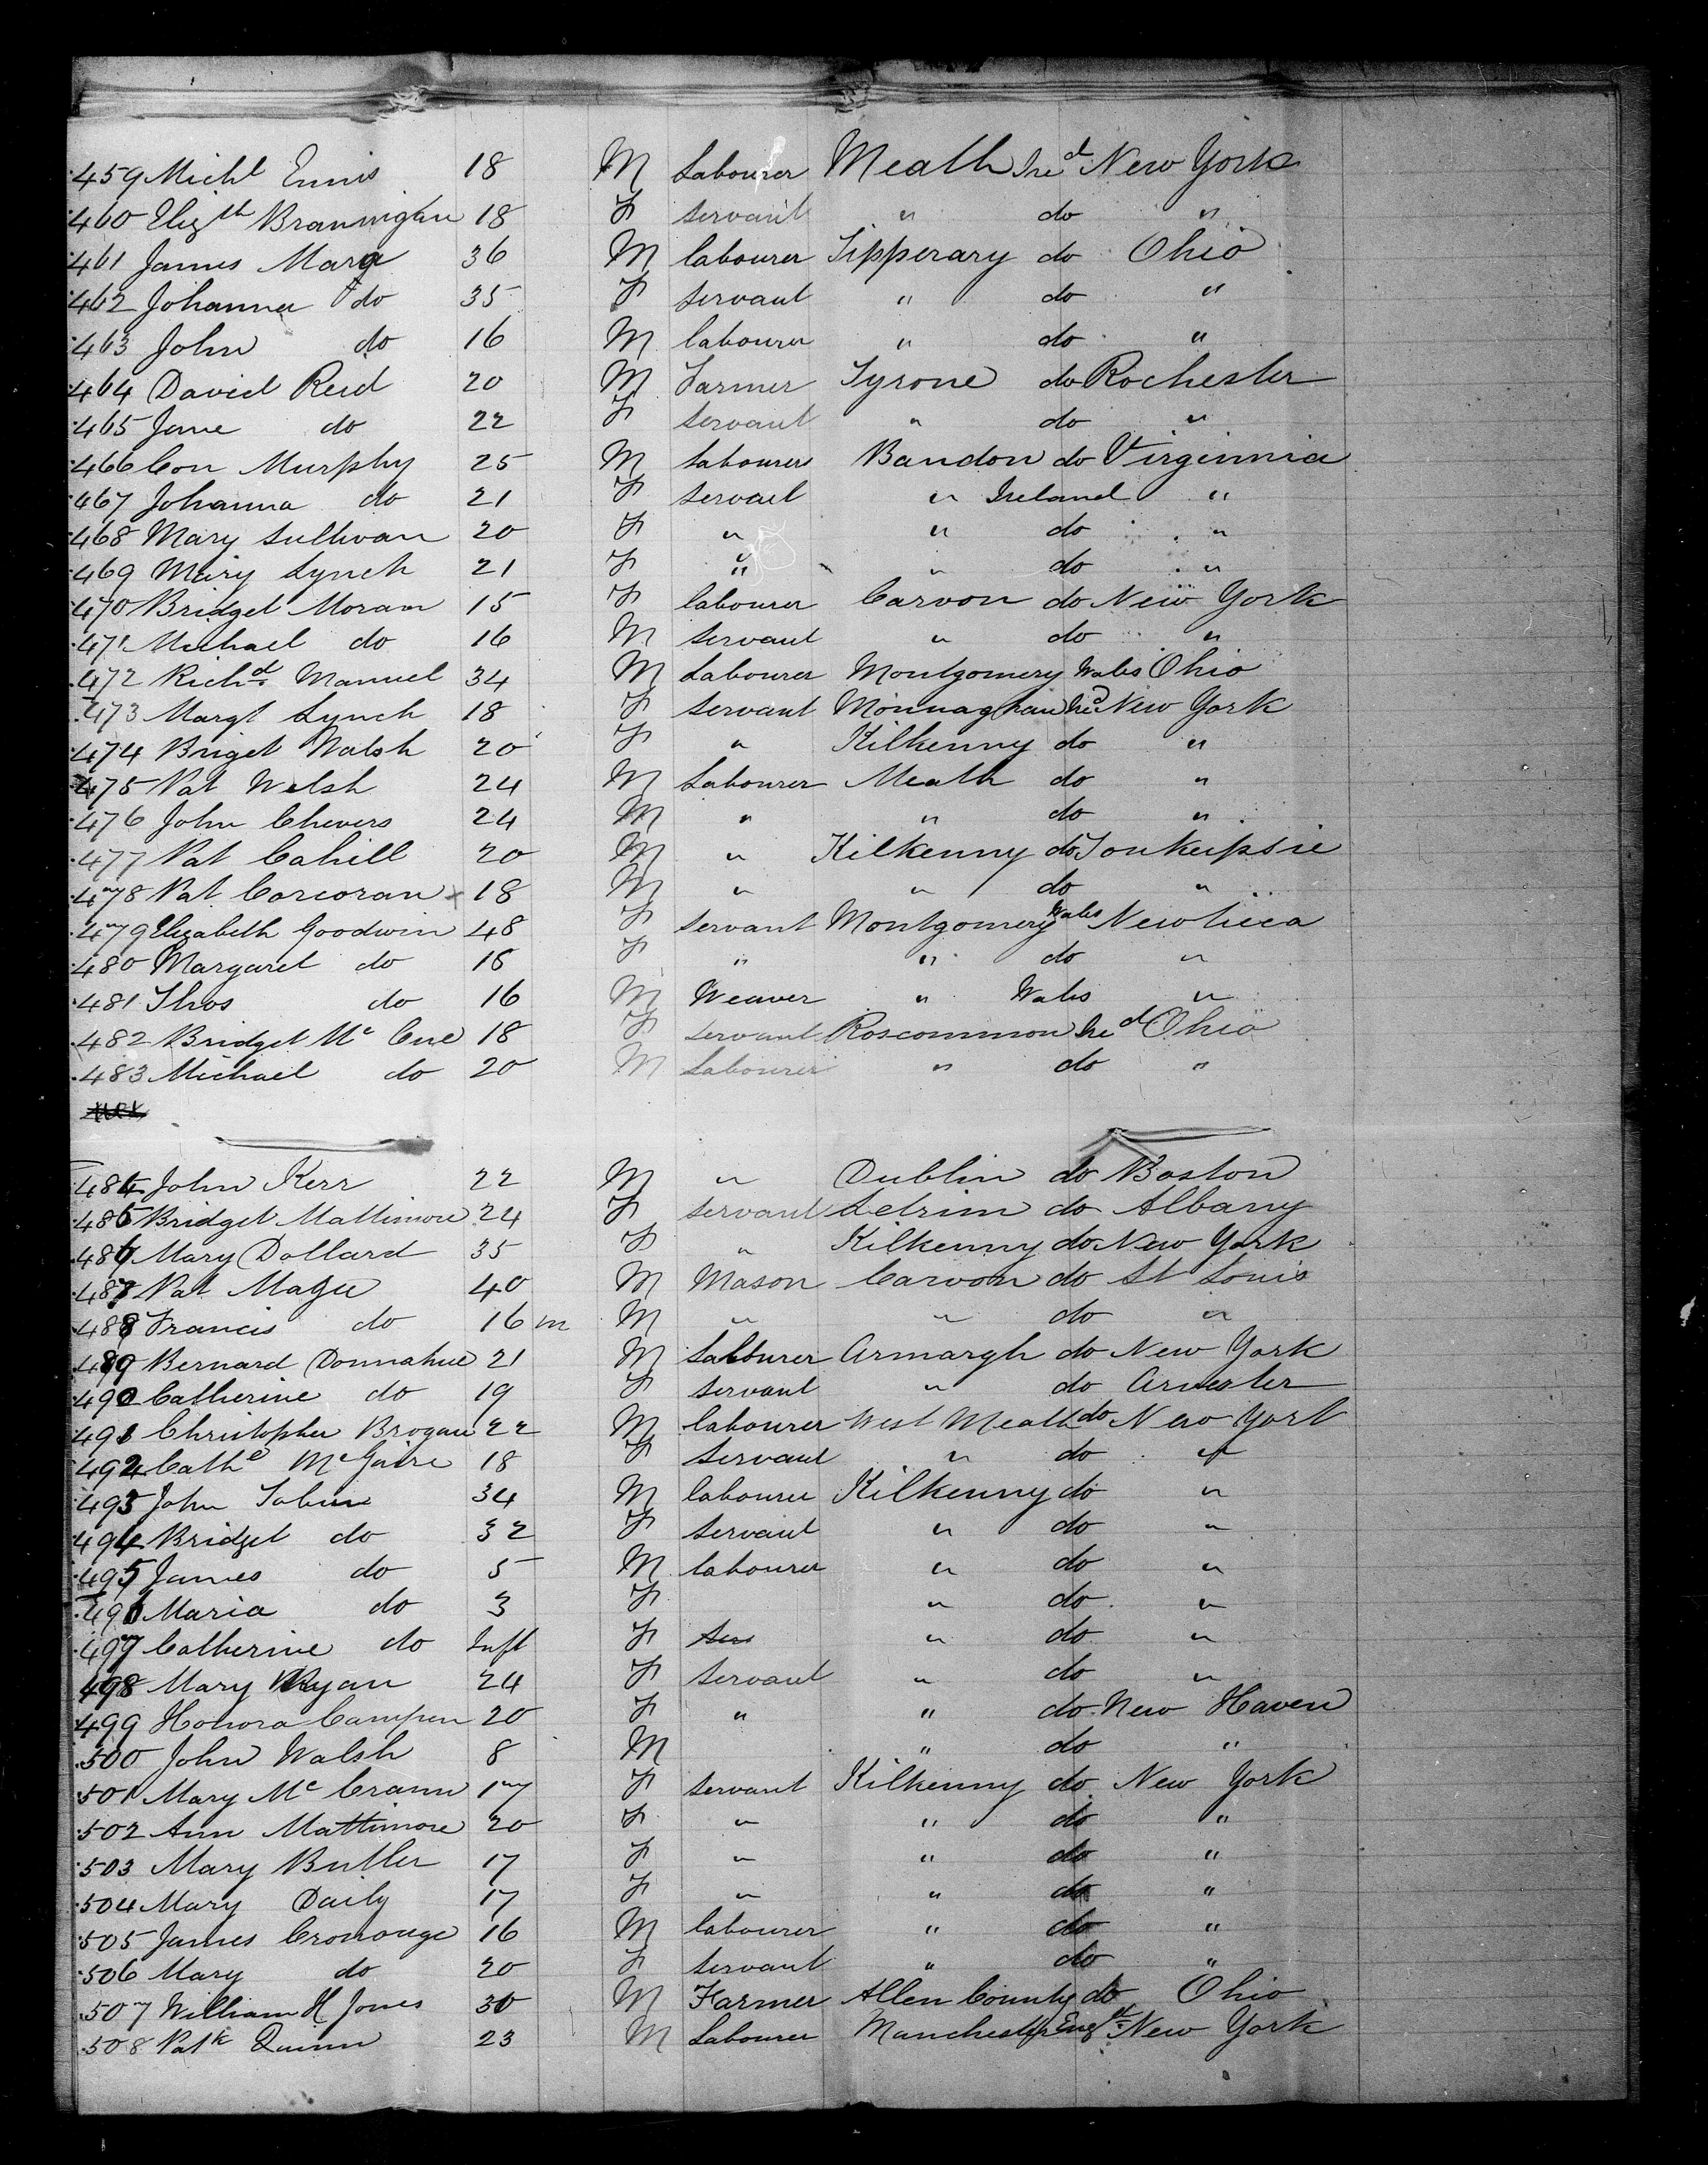 459 Michl Ennis 18 M Labourer Meath Ired New York
460 Elizth Brannigan 18 F servant " do "
461 James Mara 36 M labourer Tipperary do Ohio
462 Johanna do 35 F servant " do "
463 John do 16 M labourer " do "
464 David Reid 20 M Farmer Tyrone do Rochester
465 Jane do 22 F servant " do "
466 Con Murphy 25 M labourer Bandon do Virginnia
467 Johanna do 21 F servant " Ireland "
468 Mary Sullivan 20 F " " do "
469 Mary Lynch 21 F " " do "
470 Bridget Moran 15 F labourer Carvon do New York
471 Michael do 16 M servant " do "
472 Richd. Manuel 34 M Labourer Montgomery Wales Ohio
473 Margt Lynch 18 F servant Monnaghan Ired New York
474 Briget Walsh 20 F " Kilkenny do "
475 Pat Welsh 24 M Labourer Meath do "
476 John Chevers 24 M " " do "
477 Pat Cahill 20 M " Kilkenny do
478 Pat Corcoran 18 M " " do "
479 Elizabeth Goodwin 48 F servant Montgomery Wales New
480 Margaret do 16 F " " do "
481 Thos do 16 M Weaver " Wales "
482 Bridget Mc Cue 18 F servant Roscommon Ired Ohio
483 Michael do 20 M Labourer " do "
484 John Kerr 22 M " Dublin do Boston
485 Bridget Mattimore 24 F servant Letrim do Albany
486 Mary Dollard 35 F " Kilkenny do New York
487 Pat Magee 40 M Mason Carvon do St Louis
488 Francis do 16 m M " " do "
489 Bernard Donnahue 21 M Labourer Armargh do New York
490 Catherine do 19 F servant " do
491 Christopher Brogan 22 M labourer West Meath do New York
492 Cathe McGuire 18 F servant " do "
493 John Tobin 34 M labourer Kilkenny do "
494 Bridget do 32 F servant " do "
495 James do 5 M labourer " do "
496 Maria do 3 F " do "
497 Catherine do Inft F ser " do "
498 Mary Ryan 24 F servant " do "
499 Honora Campen 20 F " " do New Haven
500 John Walsh 8 M " do "
501 Mary Mc Crann 17 F servant Kilkenny do New York
502 Ann Mattimore 20 F " " do "
503 Mary Butler 17 F " " do "
504 Mary Daily 17 F " " do "
505 James Cronouge 16 M labourer " do "
506 Mary do 20 F servant " do "
507 William H Jones 30 M Farmer Allen County do Ohio
508 Patk Quinn 23 M Labourer Manchester Engd. New York